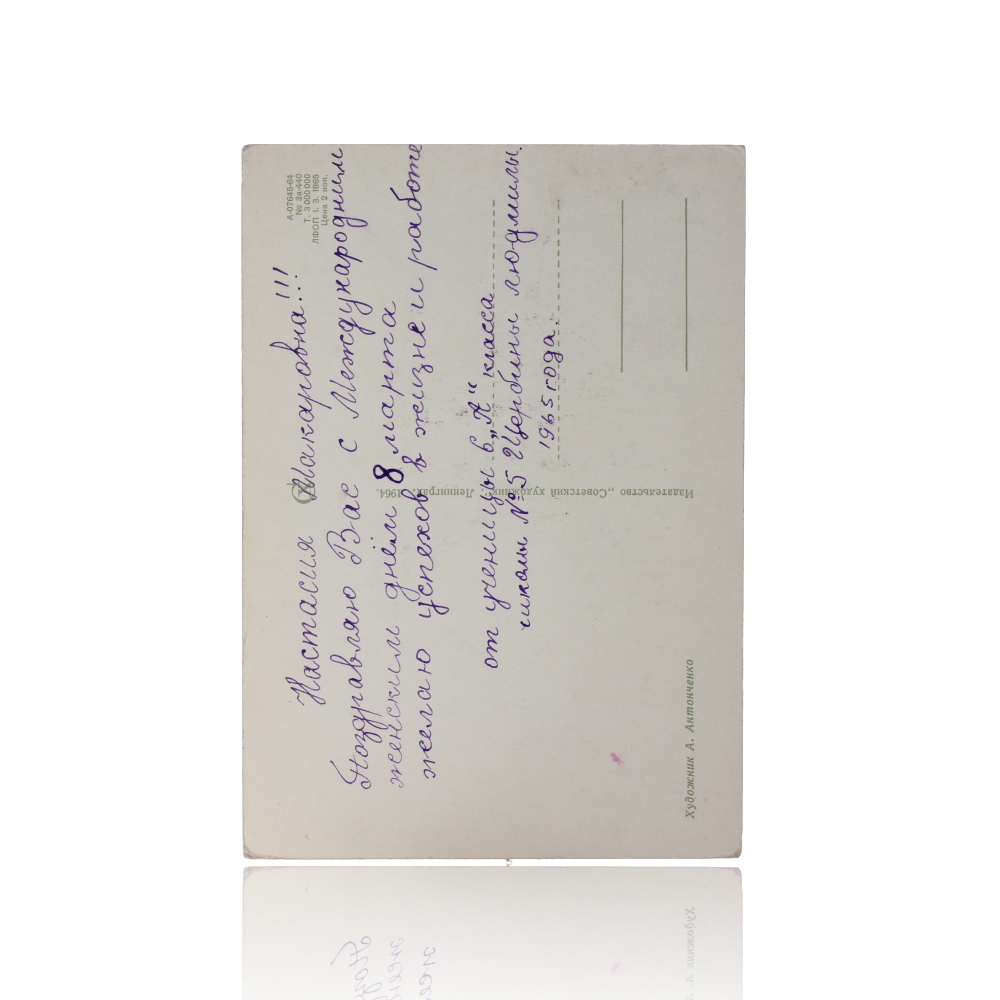 Настасия Макаровна!!!
Поздравляю Вас с Международним
женским днём 8 марта
желаю успехов в жизне и работе
от ученицы 6 „А“ класса
школы № 5 Щербины людмилы.
1965 года.
А-07645-64
№ За-440
Т. 3 000 000
ЛФОП 1. 3. 1965
Цена 2 коп.
Издательство „Советский художник“. Ленинград. 1964.
Художник А. Антонченко